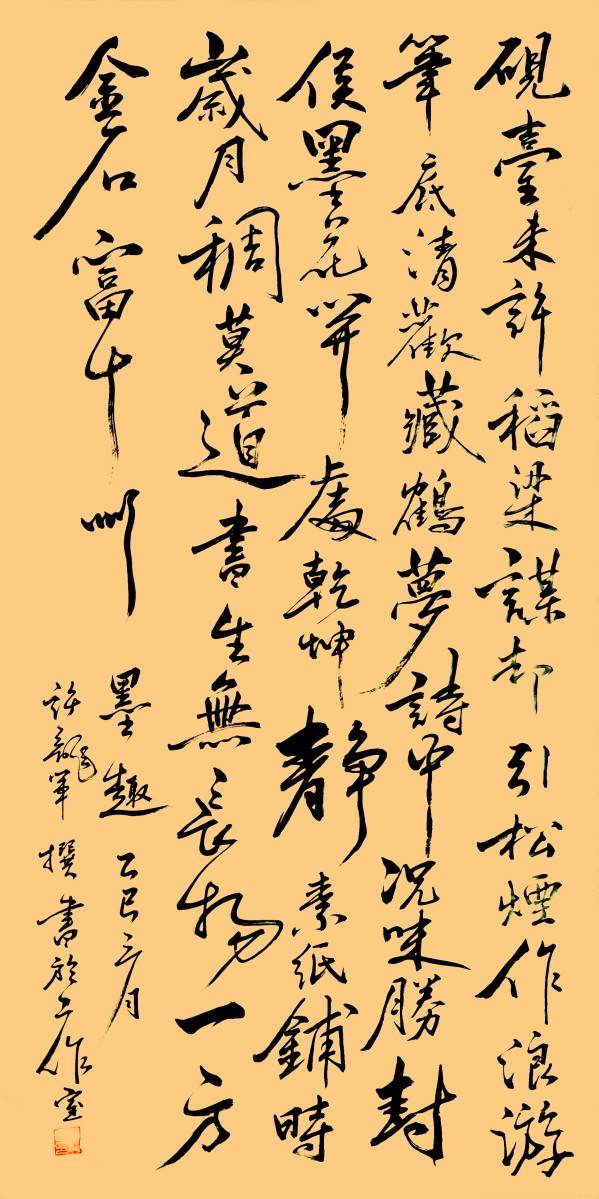 硯臺未許稻梁謀却引松煙作浪游
筆底清歡藏鶴夢詩中況味勝封
侯墨花開處乾坤靜素紙鋪時
歲月稠莫道書生無長物一方
金石富十州
墨趣乙巳三月
許龍軍撰書於工作室